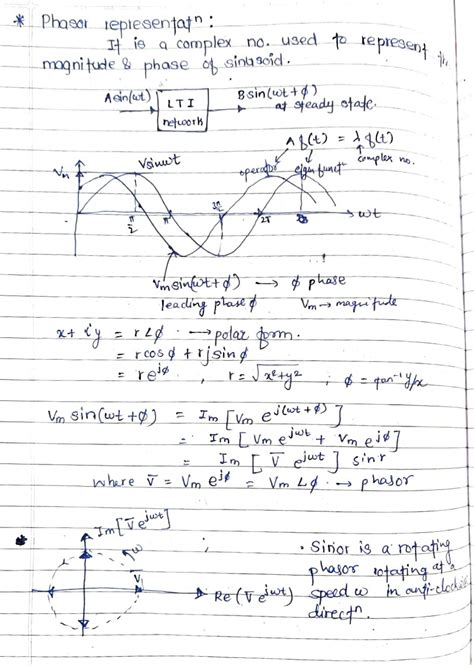 * Phasor representatⁿ :
It is a complex no. used to represent the
magnitude & phase of sinusoid.
A sin(ωt) → LTI network → B sin(ωt+ϕ)
at steady state.
A f(t) = λ f(t)
operator eigen functⁿ complex no.
Vm Vm sinωt
π/2 π 3π/2 2π ωt
Vm sin(ωt+ϕ) → ϕ phase
leading phase ϕ Vm → magnitude
x + iy = r∠ϕ → polar form.
= r cosϕ + r j sinϕ
= re^jϕ , r = √x²+y² ; ϕ = tan⁻¹ y/x
Vm sin(ωt+ϕ) = Im [Vm e^j(ωt+ϕ)]
= Im [Vm e^jωt + Vm e^jϕ]
= Im [V̅ e^jωt] sinr
where V̅ = Vm e^jϕ = Vm∠ϕ → phasor
Im[V̅e^jωt]
ω
V̅
Re(V̅e^jωt)
• Sinor is a rotating
phasor rotating at a
speed ω in anti-clockwise
directⁿ.